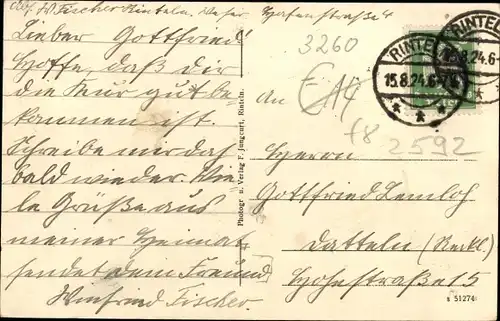 Abs. W. Fischer Rinteln, Weser, Hafenstraße 4
Lieber Gottfried!
Hoffe, daß dir
die Kur gut be-
kommen ist.
Schreibe mir doch
bald wieder. Vie-
le Grüße aus
meiner Heimat
sendet dein Freund
Winfried Fischer.
Photogr. u. Verlag F. Jungcurt, Rinteln.
3260
RINTELN
15.8.24.6-7
RINTEL
15.8.24.6-
An
E14
f8
2592
Herrn
Gottfried
Datteln (Reckl.)
Hohestraße 15
s 51274